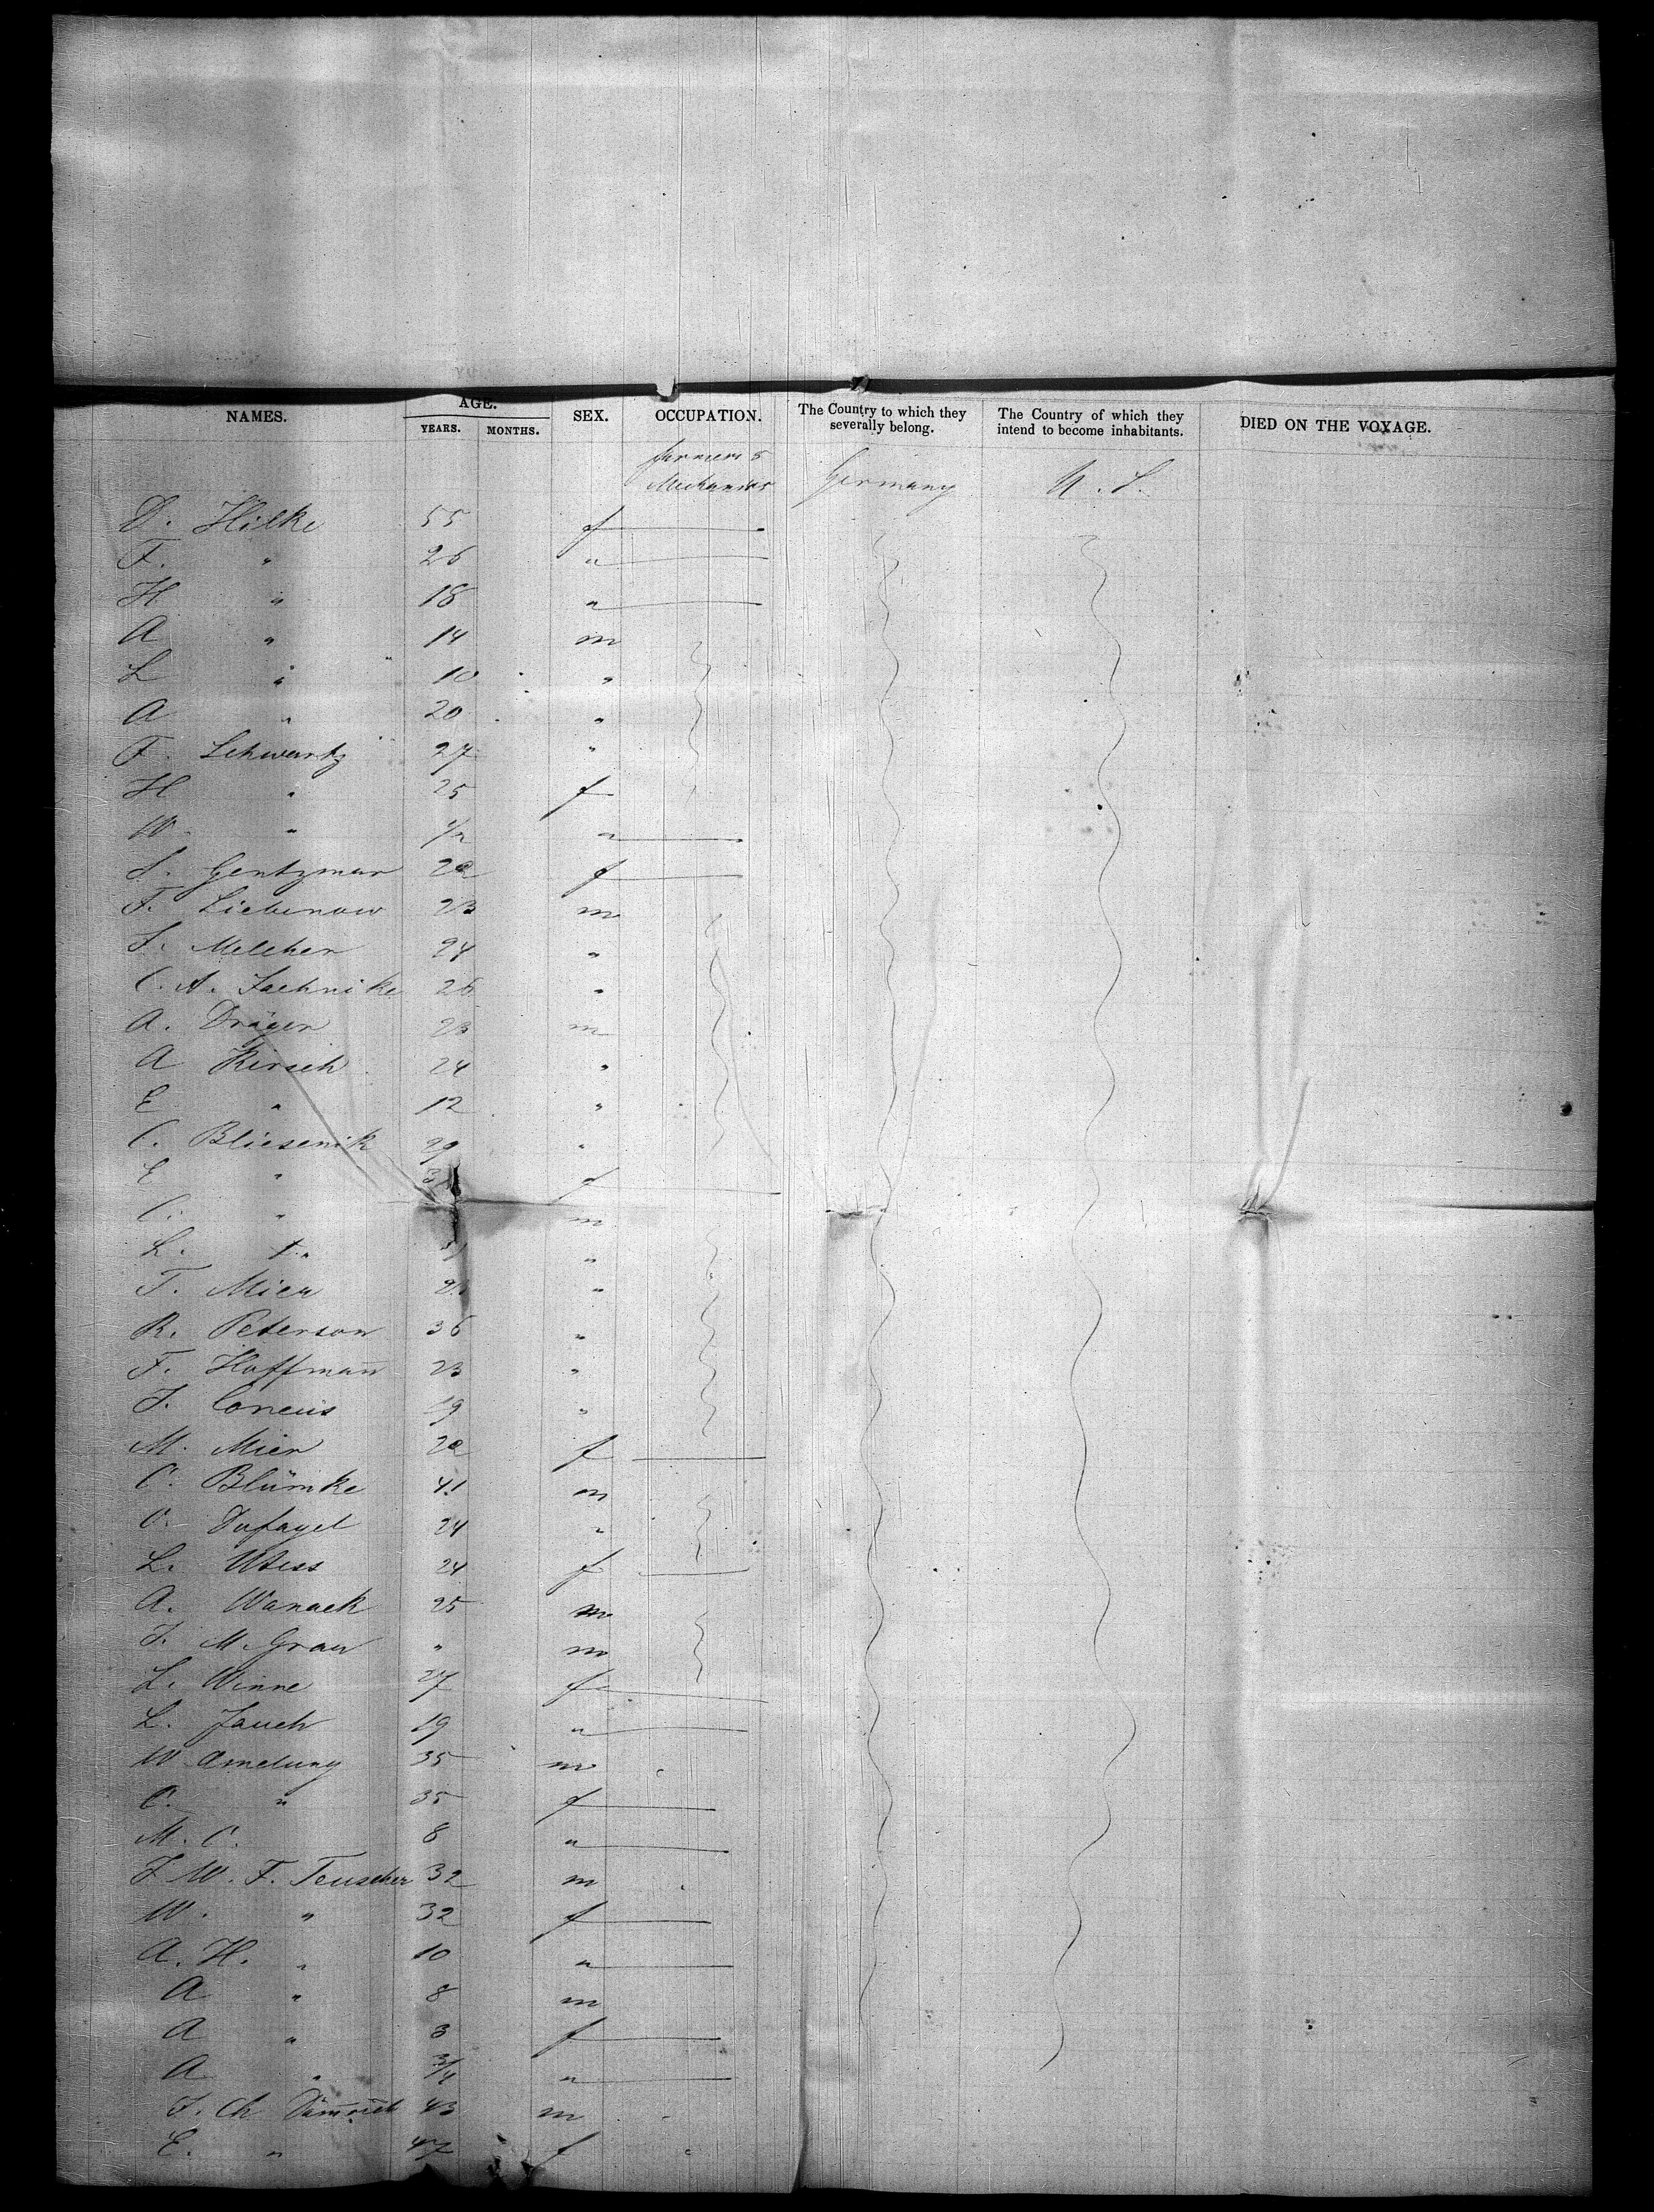 NAMES. AGE. SEX. OCCUPATION. The Country to which they severally belong. The Country of which they intend to become inhabitants. DIED ON THE VOYAGE.
YEARS. MONTHS.
farmers &
Mechanics Germany U. S.
D. Hilke 55 f
F. " 26 "
H " 18 "
A " 14 m
L " 10 "
A " 20 "
F. Schwartz 27 "
H " 25 f
W. " 1/2 "
S. Gentzmar 22 f
F. Liebenow 23 m
J. Melcher 24 "
C. A. Jachnike 26 "
A. Dräger 23 m
A Kirsch 24 "
E " 12 "
C. Bliesenik 29 "
E " f
C. " m
L. " "
T. Mier "
R. Peterson 36 "
F. Hoffman̄ 23 "
J. 19 "
M. Mier 22 f
C. Blümke 41 m
O. Dufayel 24 "
L. Weiss 24 f
A. Wanack 25 m
J. M. Grau " m
L. Winne 27 f
L. Jauch 19 "
W Amelung 35 m
C. " 35 f
M. C. 8 "
F. W. F. Teuscher 32 m
W. " 32 f
A. H. " 10 "
A " 8 m
A " 3 f
A " 3/4 "
J. Ch 43 m
E. " 47 f